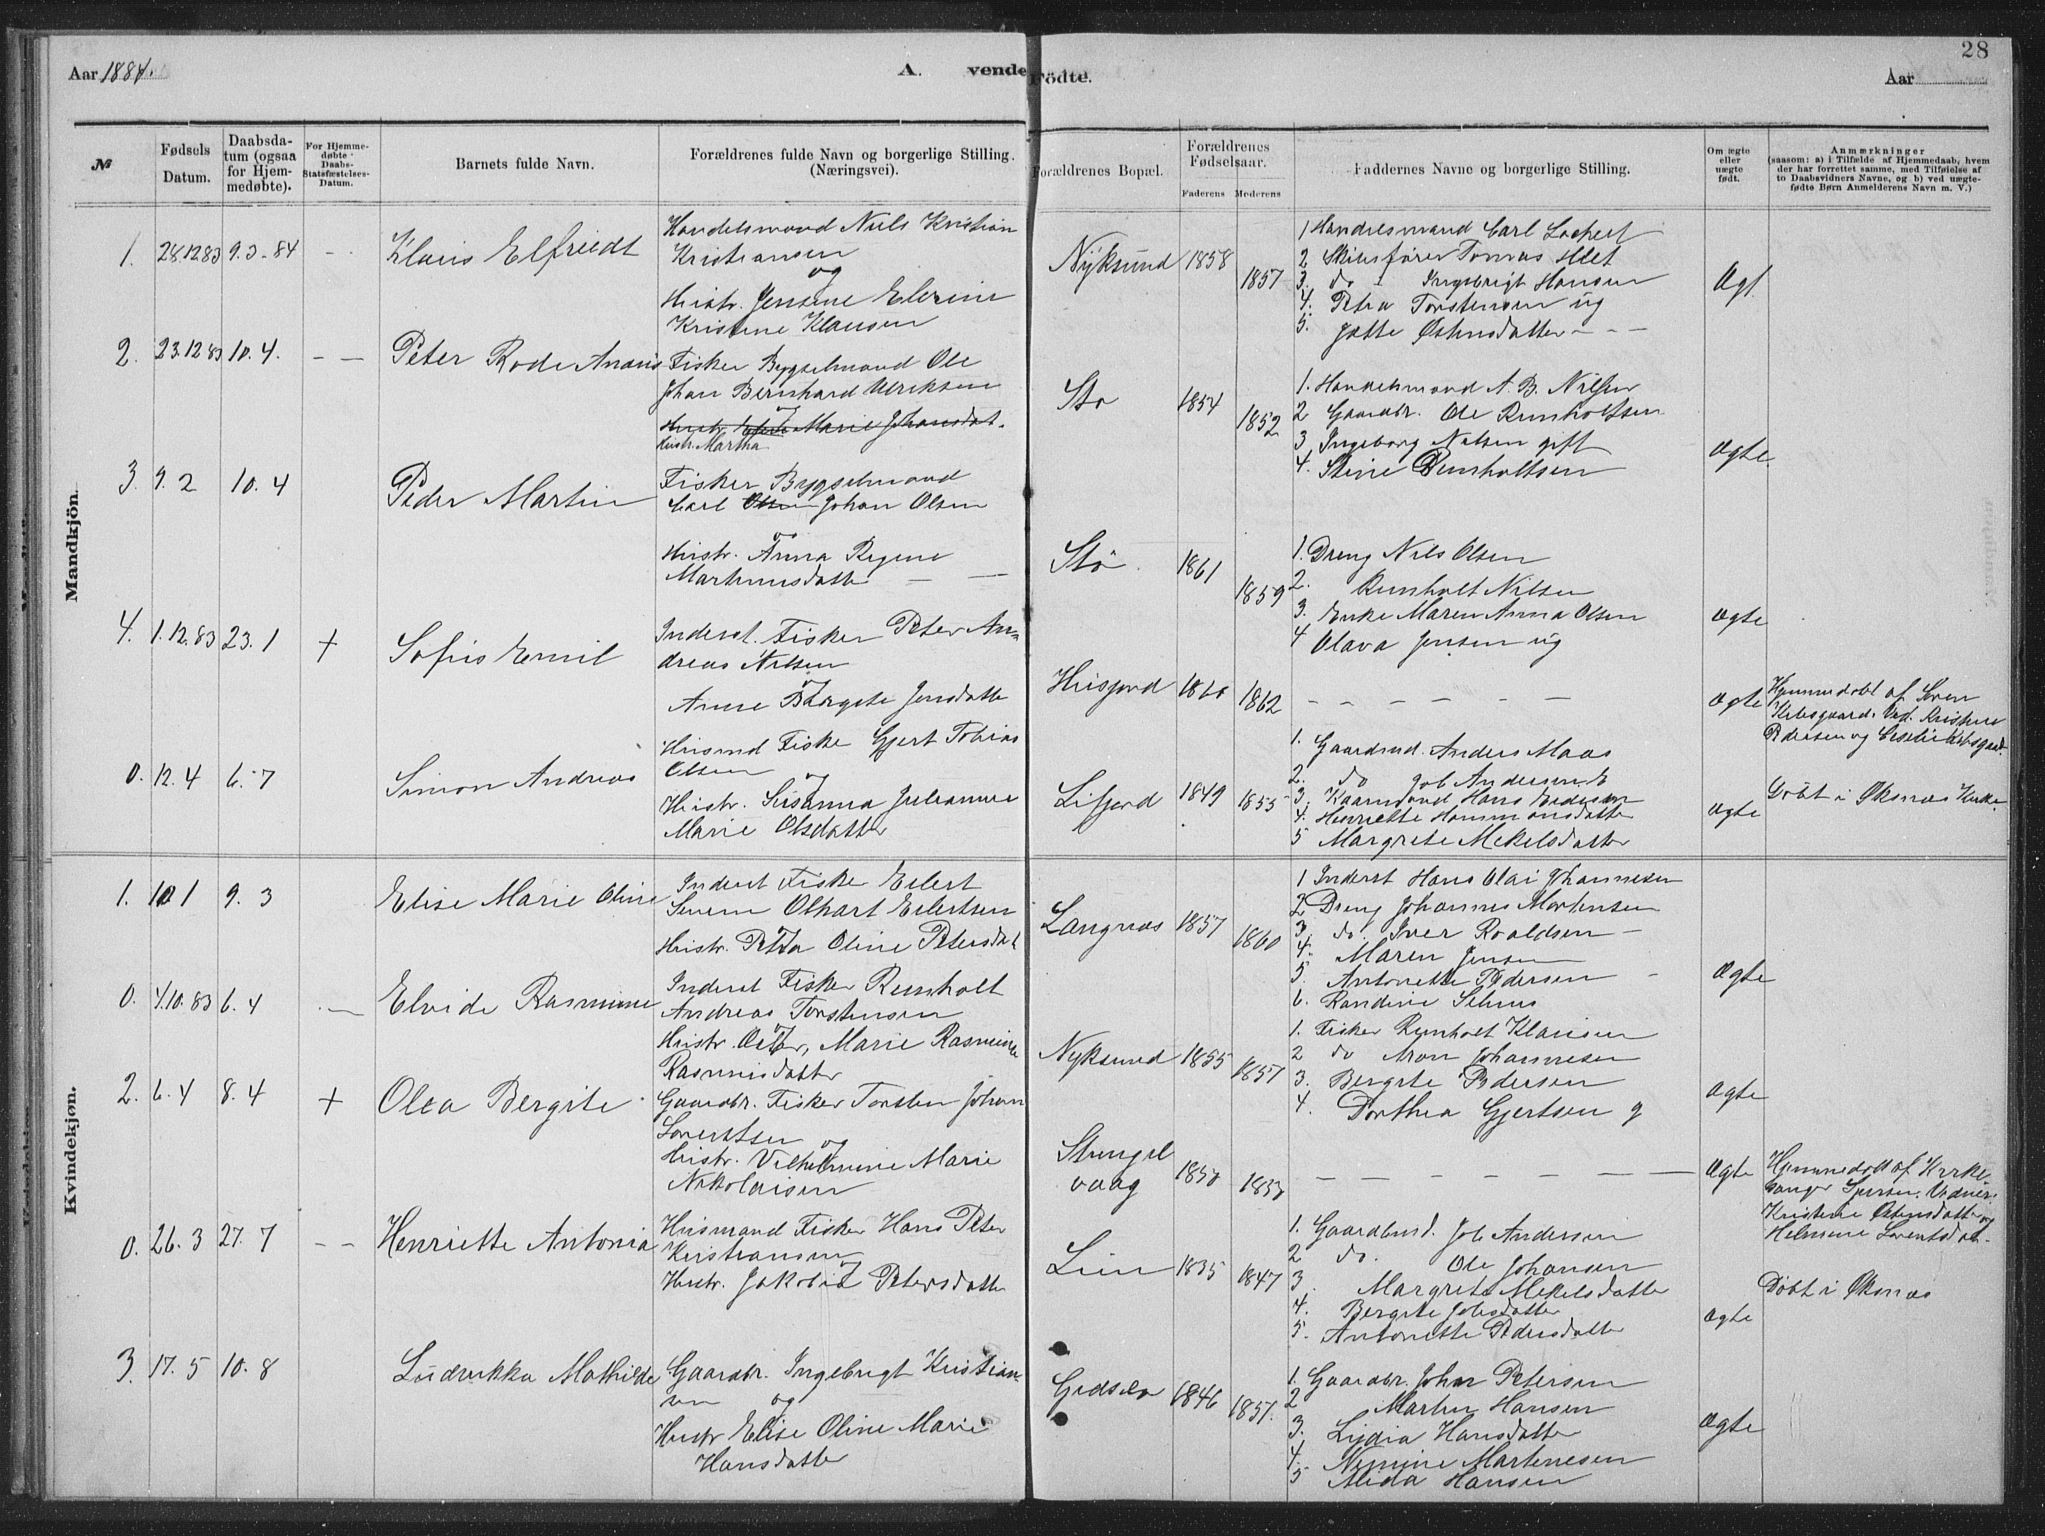 28
Aar 1884.
A. vende Födte.
Aar
№
Fødsels Datum.
Daabsda-
tum (ogsaa
for Hjem-
medøbte).
For Hjemme-
døbte
Daabs-
Statsfæstelses-
Datum.
Barnets fulde Navn.
Forældrenes fulde Navn og borgerlige Stilling.
(Næringsvei).
Forældrenes Bopæl.
Forældrenes
Fødselsaar.
Faderens Moderens
Faddernes Navne og borgerlige Stilling.
Om ægte
eller
uægte
født.
Anmærkninger
(saasom: a) i Tilfælde af Hjemmedaab, hvem
der har forrettet samme, med Tilføielse af
to Daabsvidners Navne, og b) ved uægte-
fødte Børn Anmelderens Navn m. V.)
Mandkjön.
1. 28.12.83 9.3-84 - -
Klaus Elfriedt
Handelsmand Niels Kristian
Kristiansen
og
Hustr. Jensine Elerine
Kristine Klausen
Nyksund 1858 1857
1 Handelsmand Carl Lochert
2 Skibsfører Tomas
3. do - Ingebrigt Hansen
4. Petra Torstensen ug
5. Østensdatter - - -
Ægt.
2. 23.12.83 10.4. - -
Peter Rode Ananis
Fisker Bygselmand Ole
Johan Bernhard Ulriksen
Hustr. Marie Johansdat.
Hustr. Martha
Stø 1854 1852
1. Handelsmand A. B. Nilsen
2 Gaardbr. Ole Reinholtsen
3 Ingeborg Nilsen gift
4. Stine Reinholtsen
Ægte.
3. 9.2 10.4
Peder Martin
Fisker Bygselmand
Carl Olsen Johan Olsen
Hustr. Anna Regine
Martinusdatter - -
Stø. 1861 1859
1. Dreng Nils Olsen
2. Reinholt Nilsen
3. Enke Maren Anna Olsen
4 Olava Jensen ug
Ægte
4. 1.12.83 23.1 +
Sofus Emil
Inderst. Fisker Peter An-
dreas Nilsen
Anne Bergete Jensdatter
Husfjord 1860 1862
- - - - - -
Ægte
Hjemmedøbt af Søren
Kibsgaard. Vid. Kristine
Pedersen og Kibsgaard.
0. 12.4 6.7
Simon Andreas
Husmd Fisker Gjert Tobias
Olsen
Hustr. Susanna Julianne
Marie Olsdatter
Lifjord 1849 1855
1. Gaardmd. Anders Maas
2. do Job Andersen
3. Kaarmand Hans
4. Henriette Hemmonsdatter
5 Margrete Mekelsdatter
Ægte
Døbt i Øksnæs Kirke
Kvindekjøn.
1. 10.1 9.3
Elise Marie Oline
Inderst Fisker Eilert
Severin Olhart Eilertsen
Hustr. Petra Oline Petersdat
Langnæs 1857 1860
1 Inderst Hans Olai Johannesen
2 Dreng Johannes Mortensen
3. do. Iver Roaldsen -
4. Maren Jensen
5. Antonette Pedersen -
6. Randine
Ægte
0. 4.10.83 6.4 . -
Elvide Rasmine
Inderst Fisker Reinholt
Andreas Torstensen
Hustr. Marie Rasmine
Rasmusdatter
Nyksund 1855 1857
1. Fisker Reinholt Klausen
2 do Aron Johannesen
3. Bergite Pedersen
4. Dorthea Gjertsen g
Ægte
2. 6.4 8.4 +
Olea Bergite
Gaardbr. Fisker Torsten Johan
Lorentsen
og
Hustr. Vilhelmine Marie
Nikolaisen
Strengel
vaag
- - - - - -
Ægte
Hjemmedøbt af Kirke
sanger Vidner.
Kristine Østensdatter og
Helmine Lorentsdat-
0. 26.3 27.7 - -
Henriette Antonia
Husmand Fisker Hans Peter
Kristiansen
Hustr. Jakobine Petersdatter
Lien 1835 1847
1. Gaardbmd. Job Andersen
2 do. Ole Johansen
3. Margrete Mekelsdatter
4. Bergite Jobsdatter
5. Antonette Pedersdatter
Ægte
Døbt i Øksnæs
3. 17.5 10.8
Ludvikka Mathilde
Gaardbr. Ingebrigt Kristian-
sen og
Hustr Elise Oline Marie
Hansdatter
1846 1857.
1. Gaardbr. Johan Petersen
2 Martin Hansen
3. Lydia Hansdatter
4. Martinesen
5 Alida Hansen
Ægte